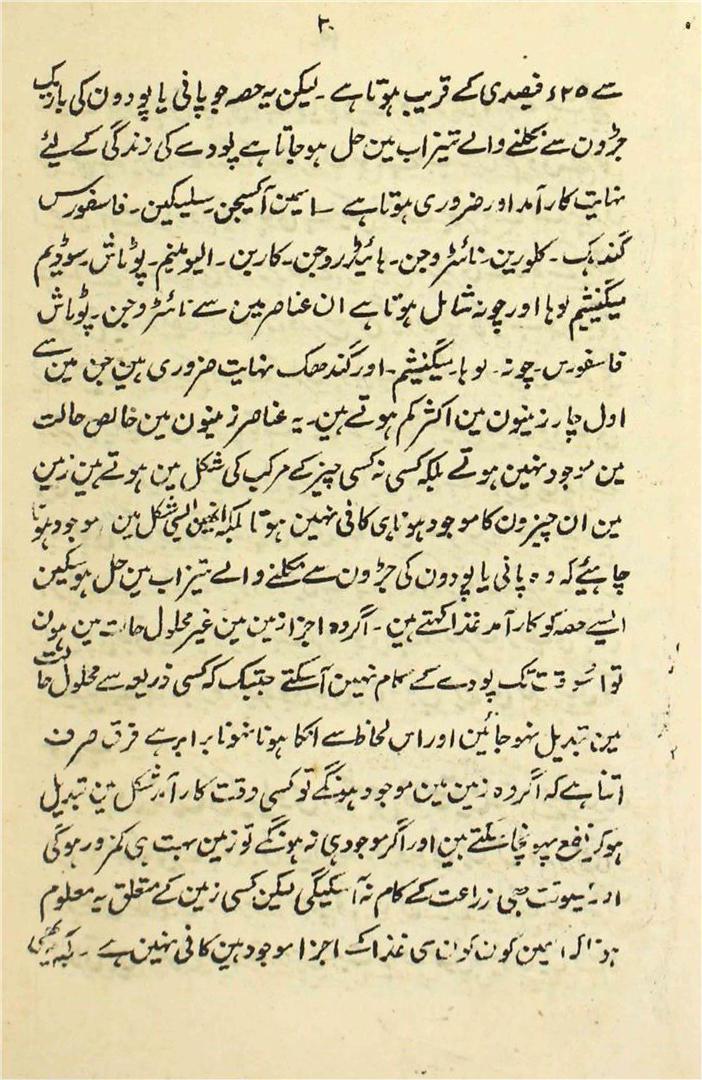 ۲
سے ۲۵ء فیصدی کے قریب ہوتا ہے ۔ لیکن یہ حصہ جو پانی یا پودون کی باریک
جڑون سے نکلنے والے تیزاب مین حل ہوجاتا ہے پودے کی زندگی کے لیئے
نہایت کارآمد اور ضروری ہوتا ہے ۔ اسمین آکسیجن ۔ سلیکین ۔ فاسفورس
گندہک ۔ کلورین ۔ نائٹروجن ۔ ہائیڈروجن ۔ کاربن ۔ الیومنیم ۔ پوٹاش ۔ سوڈیم
میگنیشیم لوہا اور چونہ شامل ہوتا ہے ان عناصر مین سے نائٹروجن ۔ پوٹاش
فاسفورس ۔ چونہ ۔ لوہا ۔ میگنیشیم ۔ اور گندھک نہایت ضروری ہین جن مین سے
اول چار زمینون مین اکثر کم ہوتے ہین ۔ یہ عناصر زمینون مین خالص حالت
مین موجود نہین ہوتے بلکہ کسی نہ کسی چیز کے مرکب کی شکل مین ہوتے ہین زمین
مین ان چیزون کا موجود ہونا ہی کافی نہین ہوتا بلکہ انھین ایسی شکل مین موجود ہونا
چاہیئے کہ وہ پانی یا پودون کی جڑون سے نکلنے والے تیزاب مین حل ہوسکین
ایسے حصہ کو کارآمد غذا کہتے ہین ۔ اگر وہ اجزا زمین مین غیر محلول حالت مین ہون
تو اسوقت تک پودے کے کام نہین آسکتے جبتک کہ کسی ذریعہ سے محلول حالت
مین تبدیل نہوجائین اور اس لحاظ سے انکا ہونا نہونا برابر ہے فرق صرف
اتنا ہے کہ اگر وہ زمین مین موجود ہونگے تو کسی وقت کارآمد شکل مین تبدیل
ہوکر نفع پہونچا سکتے ہین اور اگر موجود ہی نہ ہونگے تو زمین بہت ہی کمزور ہوگی
اور کسیوقت بھی زراعت کے کام نہ آسکیگی لیکن کسی زمین کے متعلق یہ معلوم
ہونا کہ اسمین کون کون سی غذا کے اجزا موجود ہین کافی نہین ہے ۔ بلکہ یہ بھی